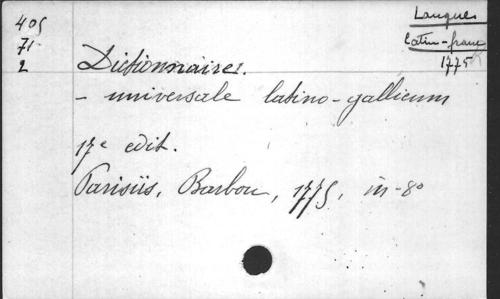 405
71
2
Langues
latin-franç
1775
Dictionnaires.
- universale latino-gallicum
17e edit.
Parisiis, Barbou, 1775, in-8o